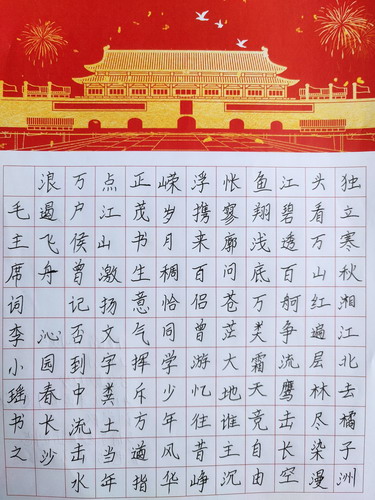 独立寒秋湘江北去橘子洲
头看万山红遍层林尽染漫
江碧透百舸争流鹰击长空
鱼翔浅底万类霜天竞自由
怅寥廓问苍茫大地谁主沉
浮携来百侣曾游忆往昔峥
嵘岁月稠恰同学少年风华
正茂书生意气挥斥方遒指
点江山激扬文字粪土当年
万户侯曾记否到中流击水
浪遏飞舟 沁园春长沙
毛主席词李小瑶书之